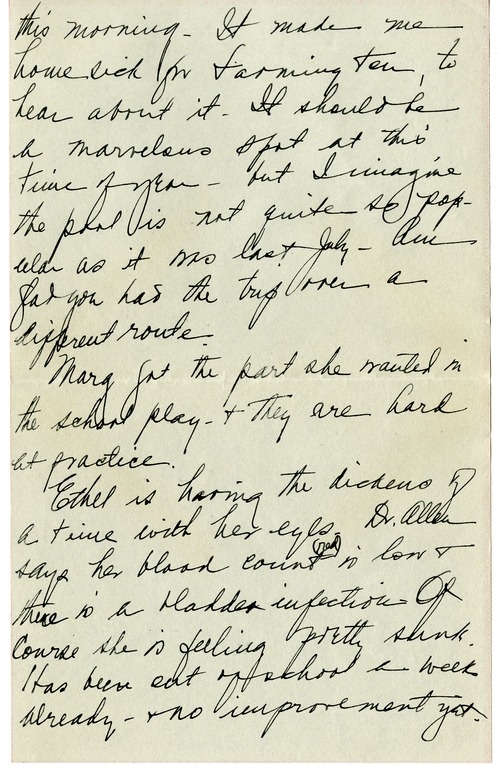 this morning - It made me
homesick for Farmington, to
hear about it - It should be
a marvelous spot at this
time of year - but I imagine
the pool is not quite so pop-
ular as it was last July - Am
glad you had the trip over a
different route.
Marg got the part she wanted in
the school play - & they are hard
at practice.
Ethel is having the dickens of
a time with her eyes. Dr. Allen
says her blood count (red) is low &
there is a bladder infection - Of
course she is feeling pretty sunk.
Has been out of school a week
already - & no improvement yet.